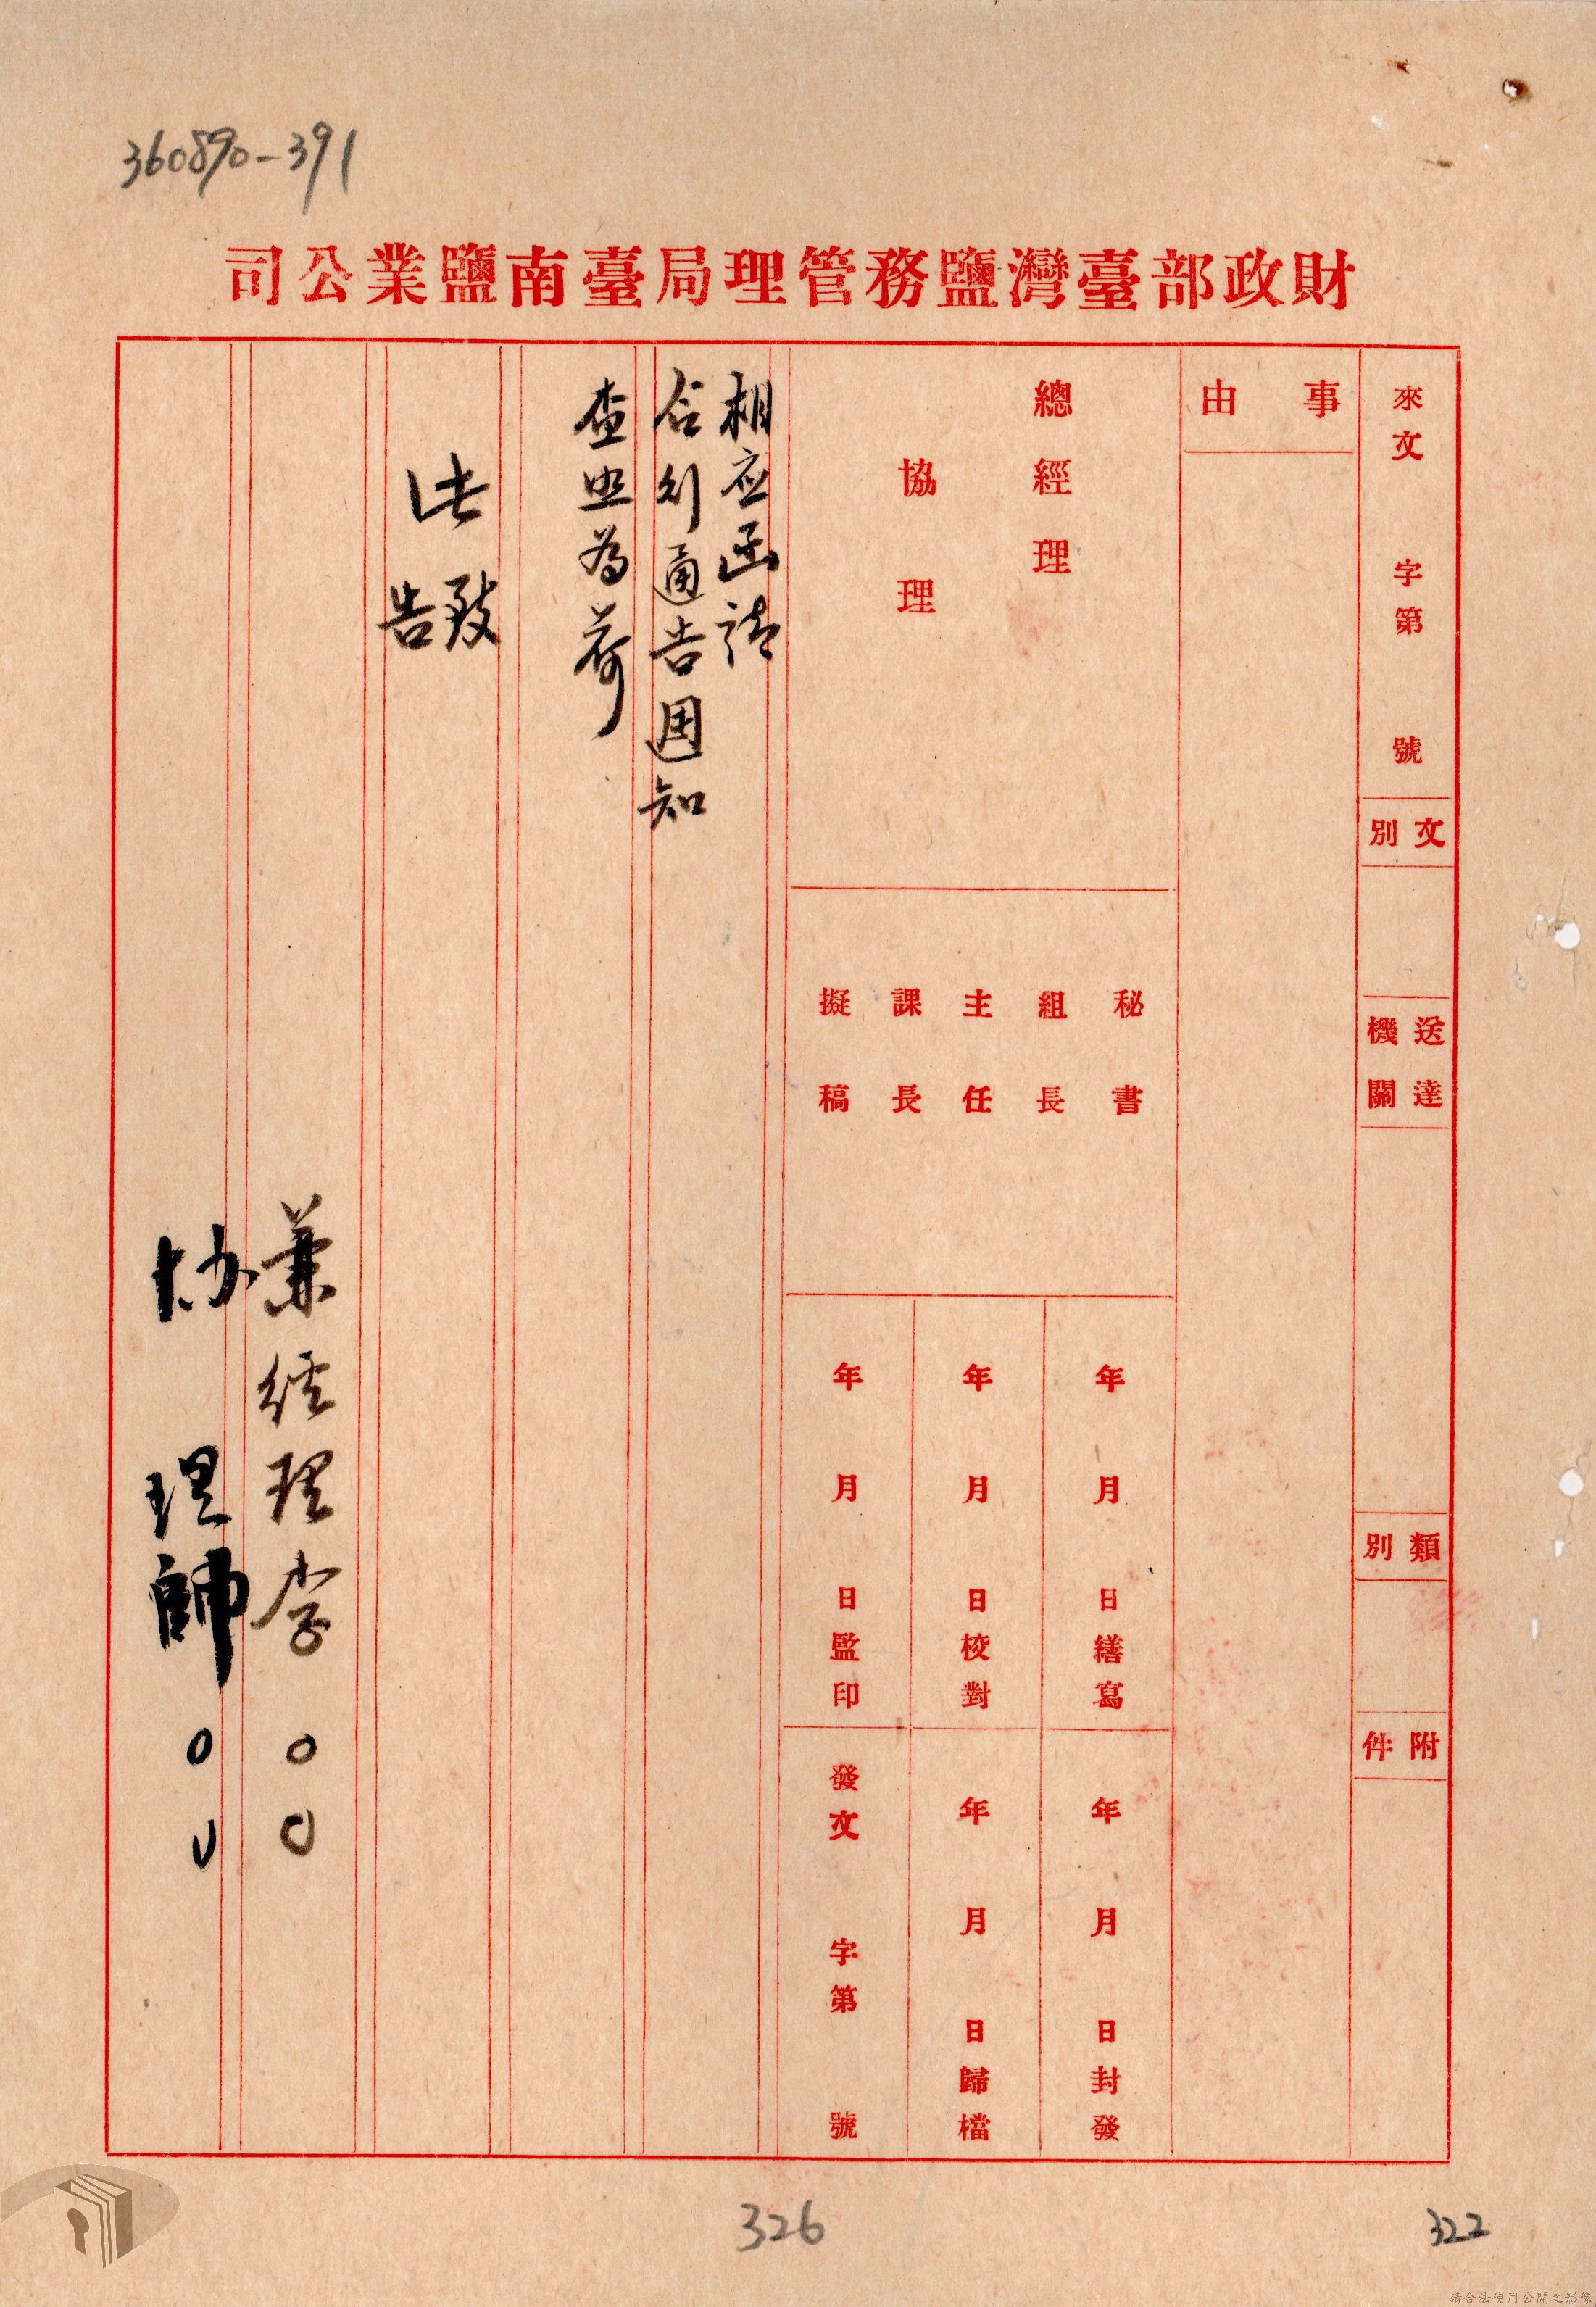 360890-391
財政部臺灣鹽務管理局臺南鹽業公司
來文 字第 號
文別
送達機關
類別
附件
事由
總經理
協理
秘書
組長
主任
課長
擬稿
年 月 日繕寫
年 月 日校對
年 月 日監印
年 月 日封發
年 月 日歸檔
發文 字第 號
相应函請
合行通告週知
查照為荷
此致
告
兼經理李○○
協理帥○○
326
322
請合法使用公開之影像